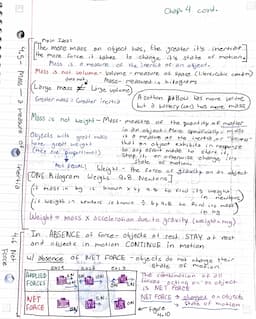 Chap. 4 cont.
4.5 - Mass - a measure of inertia
Main Idea:
The more mass an object has, the greater its inertia
the more force it takes to change its state of motion.
Mass is a measure of the inertia of an object.
Mass is not volume - Volume - measure of space (liters/cubic centim)
Mass - measured in kilograms
(Large mass ≠ Large volume)
does not
Greater mass = Greater inertia
A cotton pillow has more volume
but a battery (car) has more mass
Mass is not weight - Mass - measure of the quantity of matter
in an object. More specifically, mass
is a measure of the inertia or
that an object exhibits in response
to any effort made to start it,
stop it, or otherwise change its
state of motion
Objects with great mass
have great weight
(they are proportional)
Not Equal!
Weight - the force of gravity on an object
[ONE Kilogram Weighs 9.8 Newtons]
if mass in kg is known x by 9.8 to find its weight
in newtons
if weight in newtons is known ÷ by 9.8 to find its mass
in kg
Weight = mass x acceleration due to gravity (weight = mg)
4.6 Net Force
In ABSENCE of force - objects at rest STAY at rest
and objects in motion CONTINUE in motion
w/ Absence of NET FORCE - objects do not change their
state of motion
APPLIED FORCES
NET FORCE
The combination of all
forces acting on an object
is NET FORCE
NET FORCE → changes an objects
state of motion
Figure
4.10